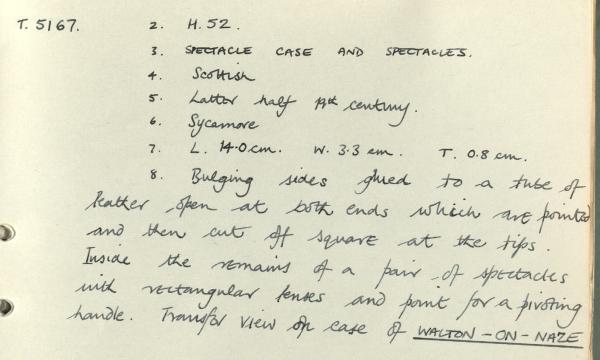 T. 5167. 2. H. 52.
3. SPECTACLE CASE AND SPECTACLES.
4. Scottish
5. Latter half 19th century.
6. Sycamore
7. L. 14.0 cm. W. 3.3 cm. T. 0.8 cm.
8. Bulging sides glued to a tube of
leather open at both ends which are pointed
and then cut off square at the tips.
Inside the remains of a pair of spectacles
with rectangular lenses and point for a pivoting
handle. Transfer view on case of WALTON-ON-NAZE